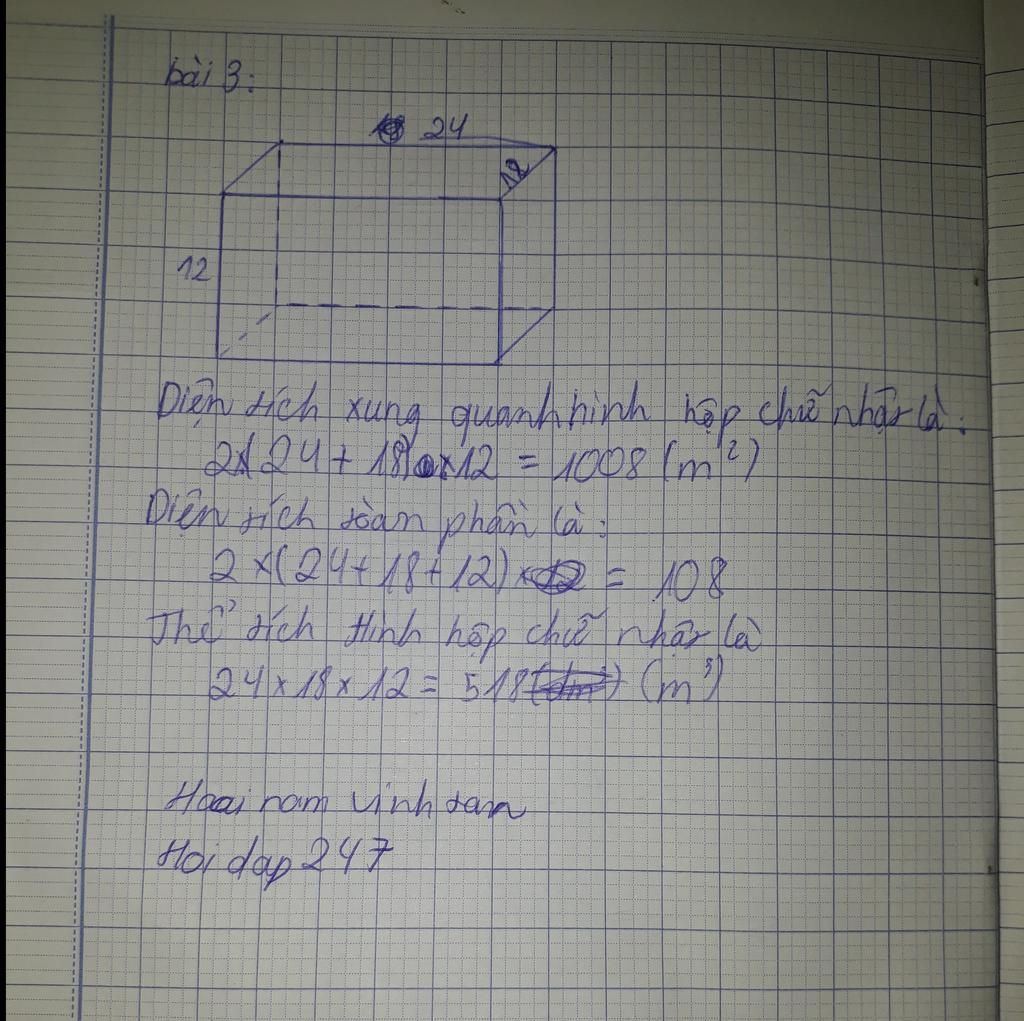 bài 3:
24
18
12
Diện tích xung quanh hình hộp chữ nhật là:
2x(24 + 18) x 12 = 1008 (m²)
Diện tích tòan phần là:
2 x (24 + 18 + 12) = 108
Thể tích Hình hộp chữ nhật là
24 x 18 x 12 = 518 (m³)
Hoai nam vinh tan
Hoi dap 247